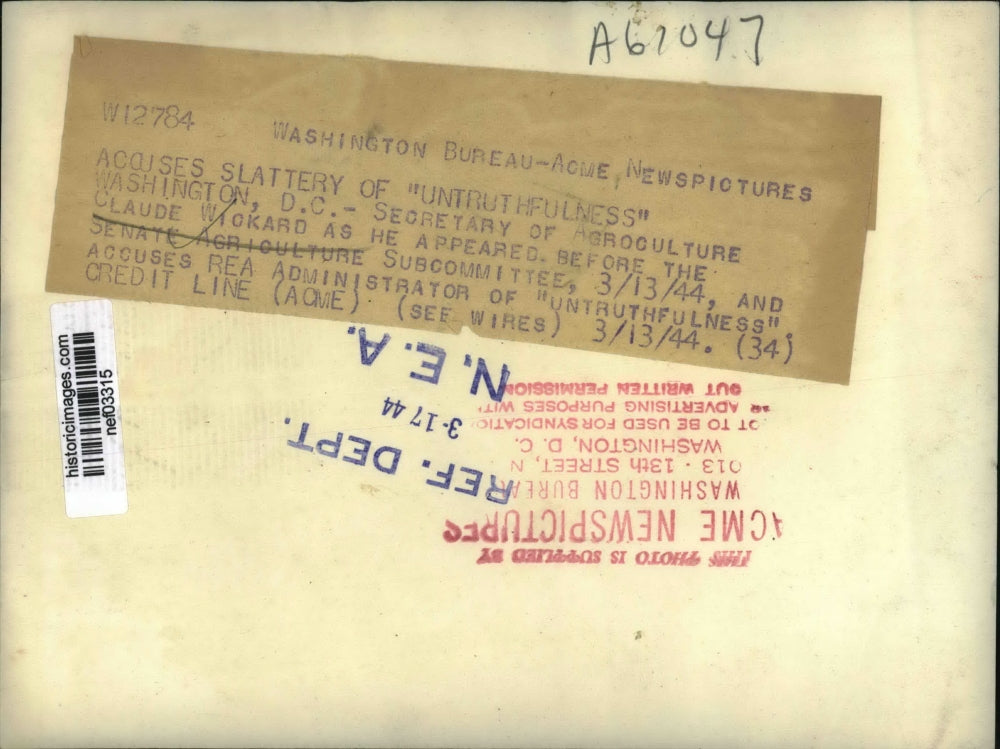 A61047
W12784
WASHINGTON BUREAU-ACME NEWSPICTURES
ACCUSES SLATTERY OF "UNTRUTHFULNESS"
WASHINGTON, D.C.- SECRETARY OF AGROCULTURE
CLAUDE WICKARD AS HE APPEARED BEFORE THE
SENATE AGRICULTURE SUBCOMMITTEE, 3/13/44, AND
ACCUSES REA ADMINISTRATOR OF "UNTRUTHFULNESS".
CREDIT LINE (ACME) (SEE WIRES) 3/13/44. (34)
historicimages.com
nef03315
REF. DEPT.
3-17 44
N. E. A.
THIS PHOTO IS SUPPLIED BY
ACME NEWSPICTURES
WASHINGTON BUREAU
013 - 13th STREET, N
WASHINGTON, D. C.
OT TO BE USED FOR SYNDICATIO
ADVERTISING PURPOSES WIT
OUT WRITTEN PERMISSION